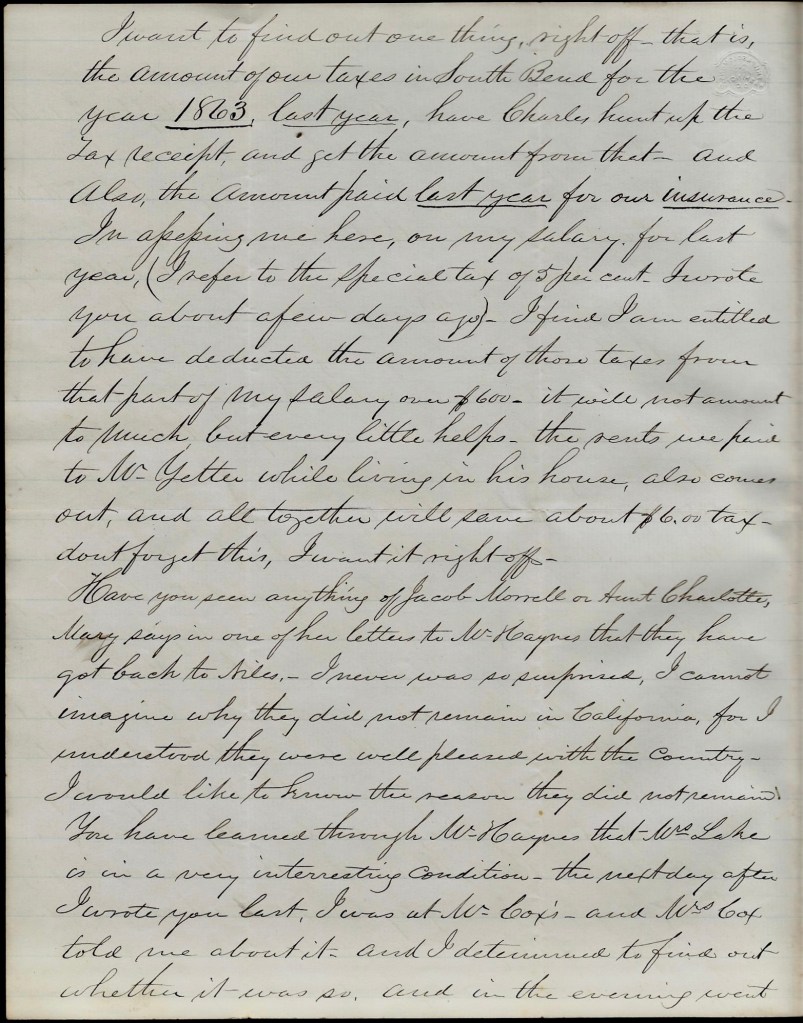 I want to find out one thing, right off – that is,
the amount of our taxes in South Bend for the
year 1863, last year, have Charles hunt up the
Tax receipt, and get the amount from that – and
Also, the amount paid last year for our insurance –
In assessing me here, on my salary, for last
year, (I refer to the special tax of 5 per cent – I wrote
you about a few days ago) – I find I am entitled
to have deducted the amount of those taxes from
that part of my salary over $600 – it will not amount
to much, but every little helps – the rents we paid
to Mr Yetter while living in his house, also comes
out, and all together will save about $6.00 tax –
dont forget this, I want it right off –
Have you seen anything of Jacob Morrell or Aunt Charlotte,
Mary says in one of her letters to Mr Haynes that they have
got back to Niles, – I never was so surprised, I cannot
imagine why they did not remain in California, for I
understood they were well pleased with the Country –
I would like to know the reason they did not remain.
You have learned through Mr Haynes that Mrs Lake
is in a very interresting condition – the next day after
I wrote you last, I was at Mr Cox's – and Mrs Cox
told me about it – and I determined to find out
whether it was so, and in the evening went